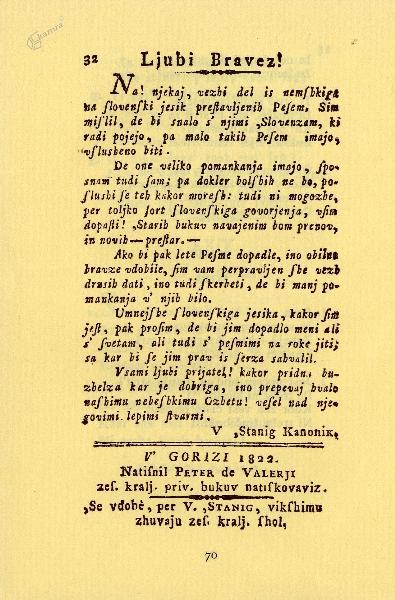 Kamra
32
Ljubi Bravez!
Na! njekaj, vezhi del is nemſhkiga
na ſlovenſki jesik preſtavljenih Peſem. Sim
miſlil, de bi snalo s' njimi ,Slovenzam, ki
radi pojejo, pa malo takih Peſem imajo,
vſlusheno biti.
De one veliko pomankanja imajo, ſpo-
snam tudi ſam; pa dokler bolſhih ne bo, po-
ſlushi ſe teh kakor moreſh: tudi ni mogozhe,
per toljko ſort ſlovenſkiga govorjenja, vſim
dopaſti! ,Starih bukuv navajenim bom prenov,
in novih — preſtar. —
Ako bi pak lete Peſme dopadle, ino obilno
bravze vdobile, ſim vam perpravljen ſhe vezh
drusih dati, ino tudi ſkerbeti, de bi manj po-
mankanja v' njih bilo.
Umnejſhe ſlovenſkiga jesika, kakor ſim
jeſt, pak proſim, de bi jim dopadlo meni ali
s' ſvetam, ali tudi s' peſmimi na roke jiti;
sa kar bi ſe jim prav is ſerza sahvalil.
Vsami ljubi prijatel! kakor pridna bu-
zhelza kar je dobriga, ino prepevaj hvalo
naſhimu nebeſhkimu Ozhetu! veſel nad nje-
govimi lepimi ſtvarmi.
V ,Stanig Kanonik.
V' GORIZI 1822.
Natiſnil PETER de VALERJI
zeſ. kralj. priv. bukuv natiſkovaviz.
,Se vdobè, per V. ,STANIG, vikſhimu
zhuvaju zeſ. kralj. ſhol,
70